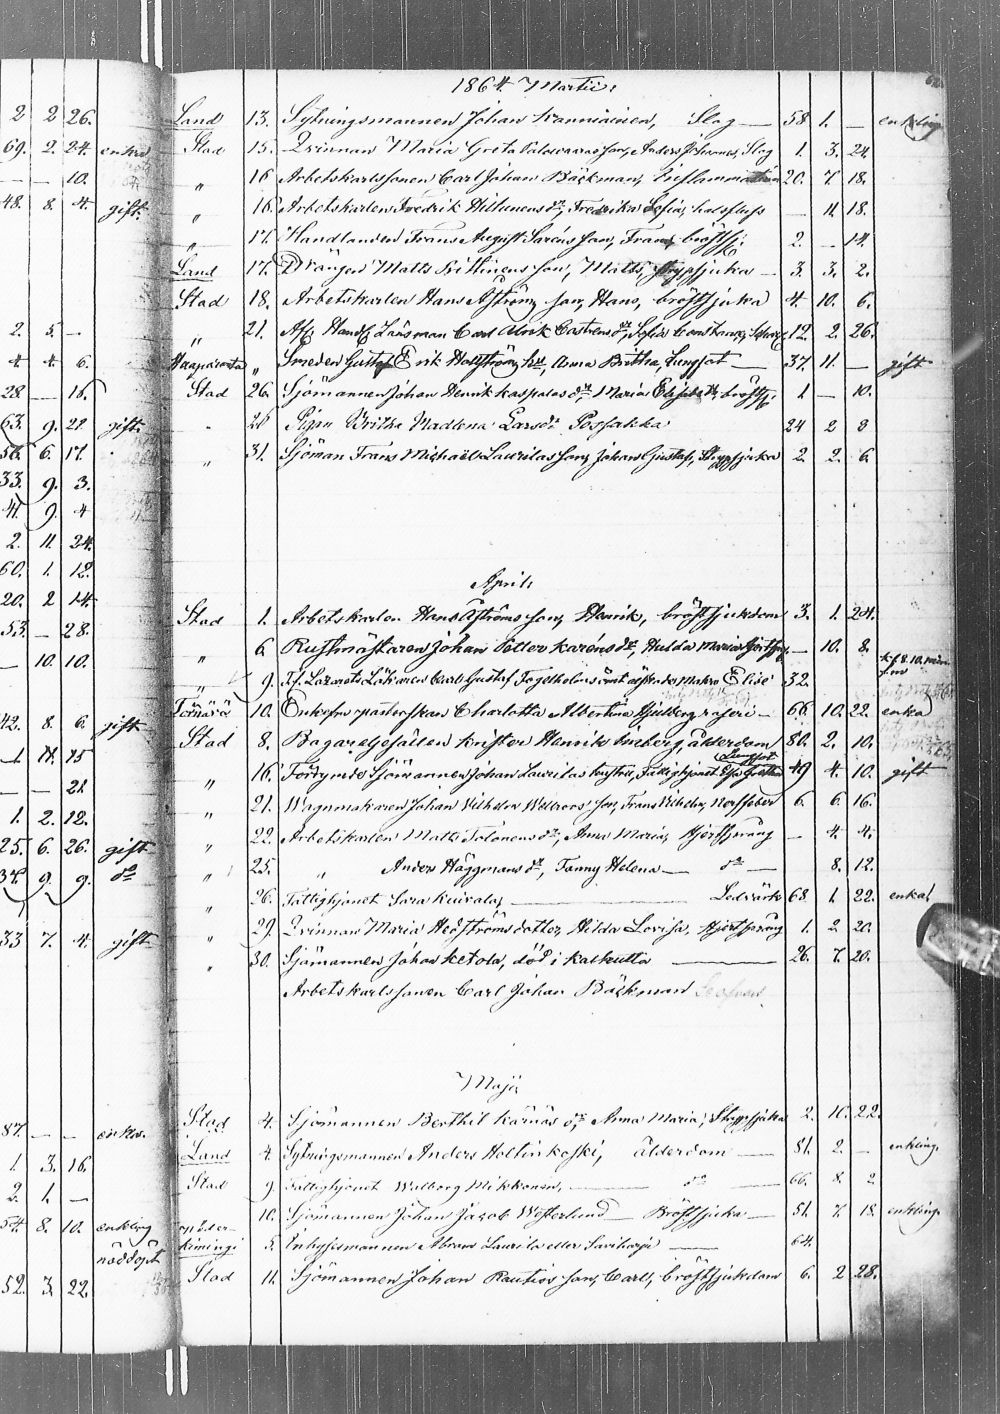 2 2 26.
69. 2. 24. enka
— — 10.
48. 8. 4. gift.
2. 5. —
4 4 6.
28. — 18.
63. 9. 22 gift.
56. 6. 17.
33. 9. 3.
41. 9. 4
2. 11. 24.
60. 1. 12.
20. 2 14.
53. — 28.
— 10. 10.
42. 8. 6. gift
1. 11. 15
— — 21.
1. 2. 12.
25. 6. 26. gift
34. 9. 9. do
33 7. 4. gift
87. — — enka.
1. 3. 16.
2. 1. —
54. 8. 10. enkling
nöddöpt
52. 3. 22.
1864 Martii
Land 13. Sytningsmannen Johan Kanniainen, Slag — 58 1. — enkling
Stad 15. Qvinnan Maria Greta son, Anders Johannes, Slag 1. 3. 24.
„ 16 Arbetskarlssonen Carl Johan Bäckman, Inflammation 20. 7. 18.
„ 16. Arbetskarlen Fredrik Hiltunens dr, Fredrika Sofia, halsfluss — 11. 18.
„ 17. Handlanden Frans August Saréns son, Frans bröstsj. 2. — 14.
Land 17. Drängen Matts Kittinens son, Matts, strypsjuka — 3. 3. 2.
Stad 18. Arbetskarlen Hans Åströms son, Hans, bröstsjuka 4. 10. 6.
„ 21. Länsman Carl Ulrik Castrens dr, Sofia Constance, 12. 2. 26.
Haaparanta „ Smeden Gustaf Erik Hollström hu, Anna Britha, Lungsot — 37. 11. — gift
Stad 26. Sjömannen Johan Henrik Kaspalas dr Maria Elisabeth bröstsj. 1 — 10.
26 Pigan Britha Madlena Larsdr Possakka 24 2 8
„ 31. Sjöman Frans Michael Laurilas son, Johan Gustaf, Strypsjuka 2. 2. 6.
April
Stad 1. Arbetskarlen Hans Åströms son, Henrik, bröstsjukdom 3. 1. 24.
„ 6 Rustmästaren Johan Petter Karéns dr, Hulda Maria — 10. 8.
„ 9. Lazarets Läkaren Carl Gustaf Fagelholms Makan Elise 32.
Tornäva 10. Enkefru pastorskan Charlotta Albertina Hjulberg, raseri — 66. 10. 22. enka
Stad 8. Bagaregesällen Krister Henrik Öneberg, ålderdom 80. 2. 10.
„ 16. Förrymde Sjömannen Johan Laurilas hustru, Fattighjonet Lungsot 49 4. 10. gift
„ 21. Wagnmakaren Johan Wilhelm Wallroos' son, Frans Wilhelm, Nerffeber 6. 6. 16.
„ 22. Arbetskarlen Matts Tolonens dr, Anna Maria, Hjertsprång — 4. 4.
„ 25. „ Anders Häggmans dr, Fanny Helena — do — 8. 12.
„ 26. Fattighjonet Sara Kuivala, — Ledvärk 68. 1 22. enka
„ 29. Qvinnan Maria Hedströms dotter, Hilda Lovisa, Hjertsprång 1. 2. 20.
„ 30. Sjömannen Johan Ketola, död i Kalkutta — 26. 7. 20.
Arbetskarlssonen Carl Johan Bäckman
Maji
Stad 4. Sjömannen Berthil Kärnäs dr, Anna Maria, Strypsjuka 2. 10. 22.
Land 4. Sytningsmannen Anders Holtinkoski, ålderdom — 81. 2. — enkling
Stad 9. Fattighjonet Walborg Mikkonen, — do — 66. 8. 2
10. Sjömannen Johan Jacob Westerlund — Bröstsjuka — 51. 7. 18. enkling.
kimingi 5. Inhysesmannen Abram Laurila eller Saviharju — 64.
Stad 11. Sjömannen Johan Rautios son, Carl, bröstsjukdom 6. 2 28.